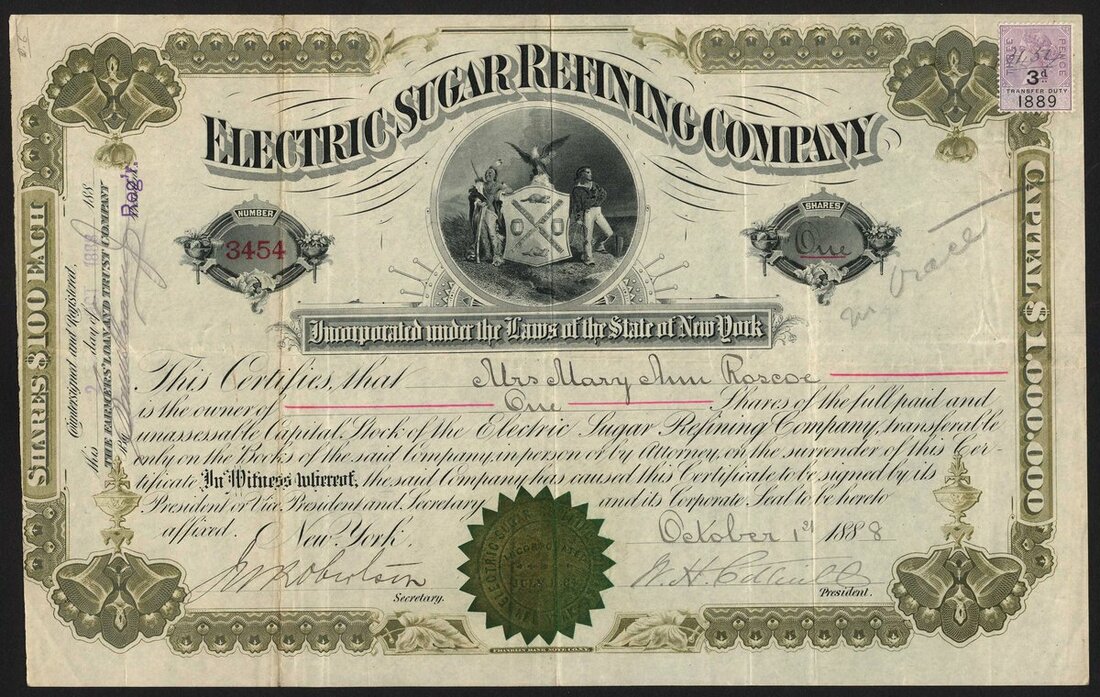 ELECTRIC SUGAR REFINING COMPANY
THREE PENCE
3d
TRANSFER DUTY
1889
NUMBER
3454
SHARES
One
Incorporated under the Laws of the State of New York
This Certifies, that Mrs Mary Ann Roscoe
is the owner of One Shares of the full paid and
unassessable Capital Stock of the Electric Sugar Refining Company, transferable
only on the Books of the said Company, in person or by Attorney, on the surrender of this Cer-
tificate In Witness whereof, the said Company has caused this Certificate to be signed by its
President or Vice President and Secretary and its Corporate Seal to be hereto
affixed. New York, October 1st 1888
J W Robertson
Secretary.
President.
SHARES $100 EACH
Countersigned and Registered,
this day of 188
THE FARMERS' LOAN AND TRUST COMPANY
Reg'r.
CAPITAL $1,000,000
FRANKLIN BANK NOTE CO. N.Y.